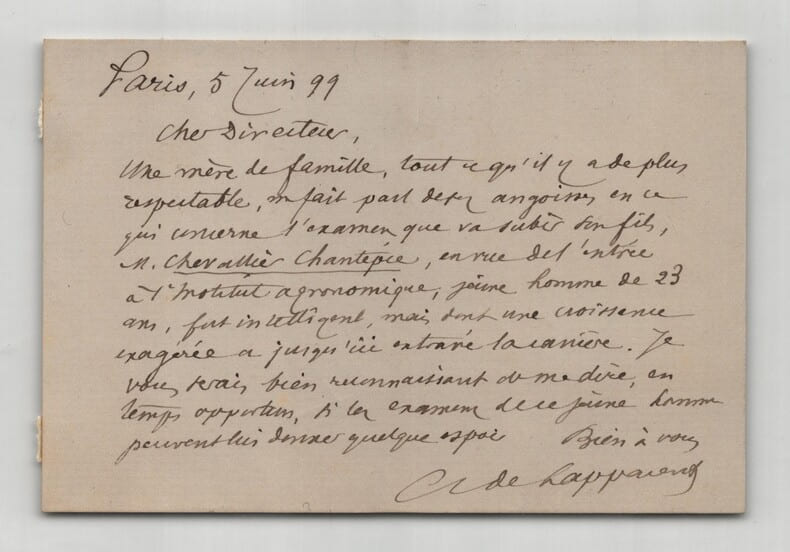 Paris, 5 Juin 99
Cher Directeur,
Une mère de famille, tout ce qu'il y a de plus
respectable, m fait part de ses angoisses en ce
qui concerne l'examen que va subir son fils,
M. Chevallier Chantepie, en vue de l'entrée
à l'Institut agronomique, jeune homme de 23
ans, fort intelligent, mais dont une croissance
exagérée a jusqu'ici entravé la carrière. Je
vous serais bien reconnaissant de me dire, en
temps opportun, si les examens de ce jeune homme
peuvent lui donner quelque espoir Bien à vous
A de Lapparent